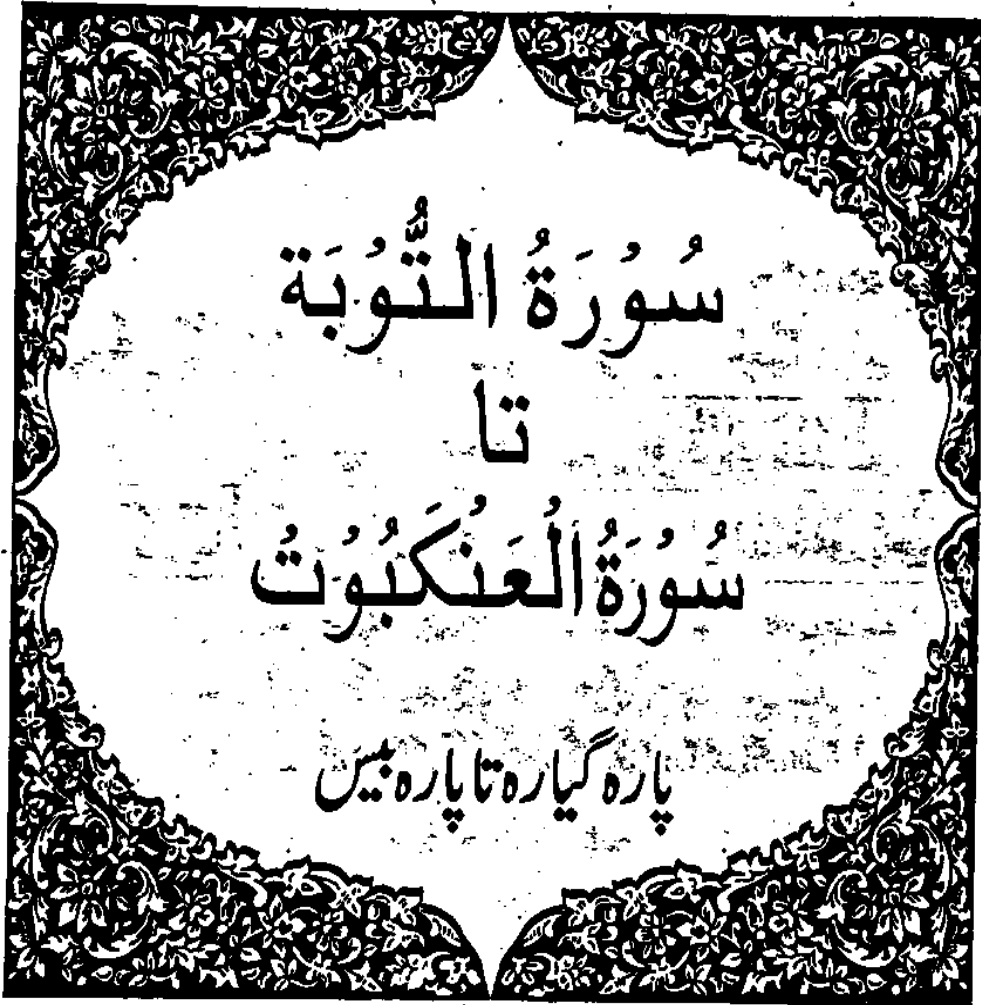 سُوْرَةُ التُّوْبَة
تا
سُوْرَةُ الْعَنْكَبُوْتُ
پارہ گیارہ تا پارہ بیس